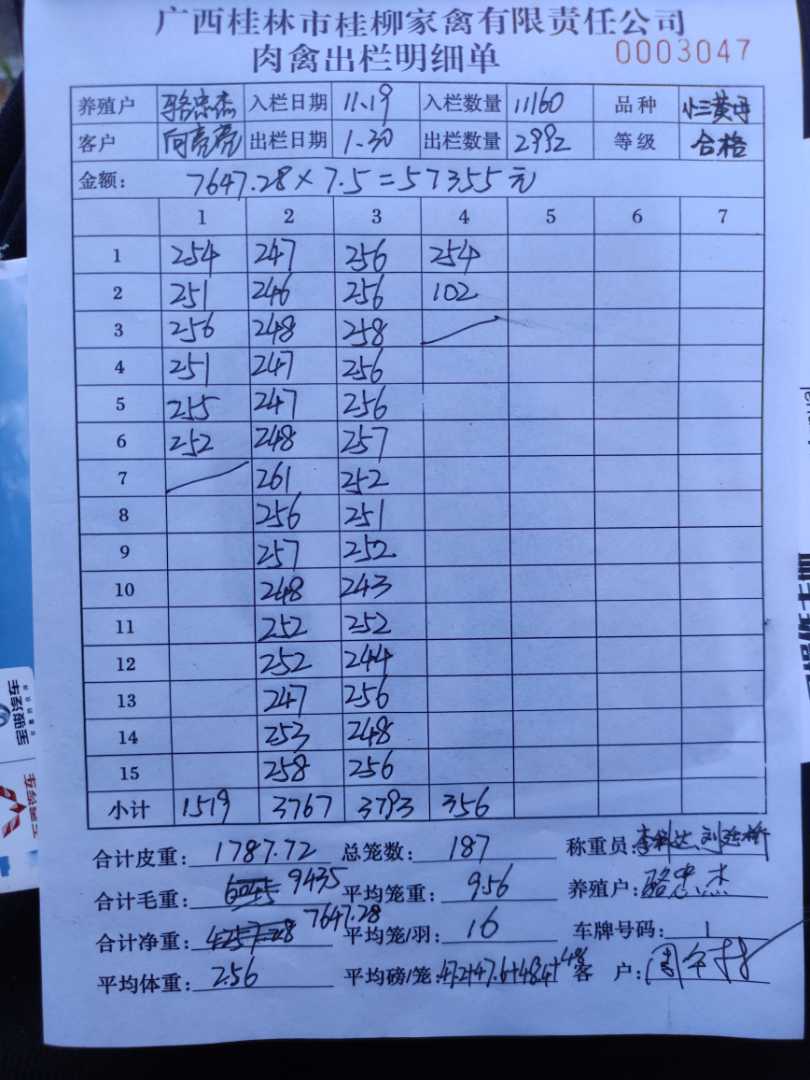 广西桂林市桂柳家禽有限责任公司
肉禽出栏明细单 0003047
养殖户 骆忠杰 入栏日期 11.19 入栏数量 11160 品种
客户 向亮亮 出栏日期 1.30 出栏数量 2992 等级 合格
金额: 7647.28×7.5=57355元
1 2 3 4 5 6 7
1 254 247 256 254
2 251 246 256 102
3 256 248 258
4 251 247 256
5 255 247 256
6 252 248 257
7 261 252
8 256 251
9 257 252
10 248 243
11 252 252
12 252 244
13 247 256
14 253 248
15 258 256
小计 1519 3767 3793 356
合计皮重: 1787.72 总笼数: 187 称重员:
合计毛重: 6045 9435 平均笼重: 9.56 养殖户: 骆忠杰
合计净重: 4257.28 7647.28 平均笼/羽: 16 车牌号码:
平均体重: 2.56 平均磅/笼: 47.2+47.6+48.4+48 客户:
宝骏汽车